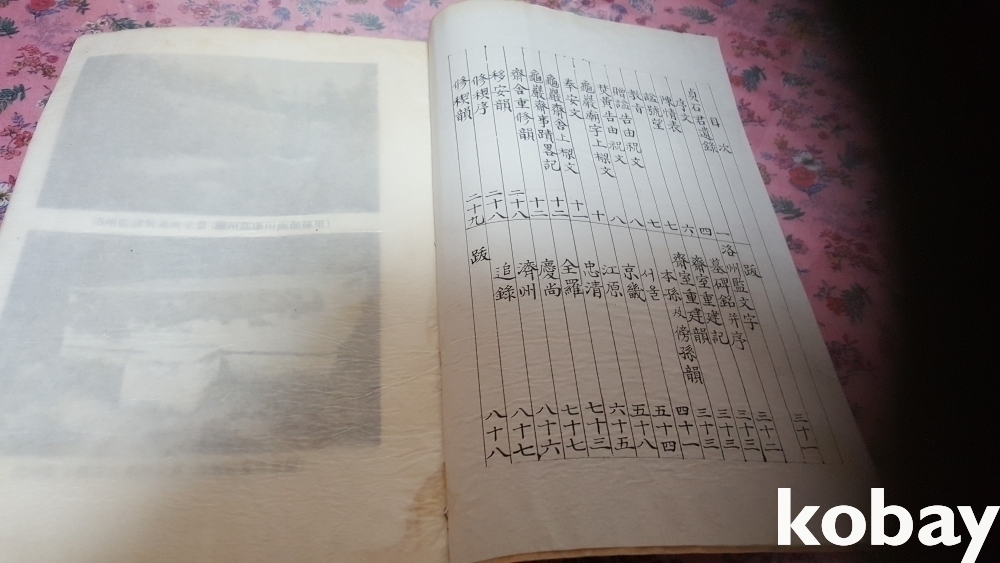 目次
貞石君遺錄
序文 一
陳情表 四
諡號望 六
敎旨 七
贈諡告由祝文 七
焚黃告由祝文 八
龜巖廟宇上樑文 八
奉安文 十
龜巖齋舍上樑文 十一
龜巖齋事蹟畧記 十二
齋舍重修韻 十二
移安韻 二十八
修稧序 二十八
修稧韻 二十九
跋 三十一
洛州監文字 三十二
墓碑銘并序 三十三
齋室重建記 三十三
齋室重建韻 三十三
本孫及傍孫韻 四十一
서울 五十四
京畿 五十八
江原 六十五
忠清 七十三
全羅 七十七
慶尚 八十六
濟州 八十七
追錄 八十八
跋
kobay